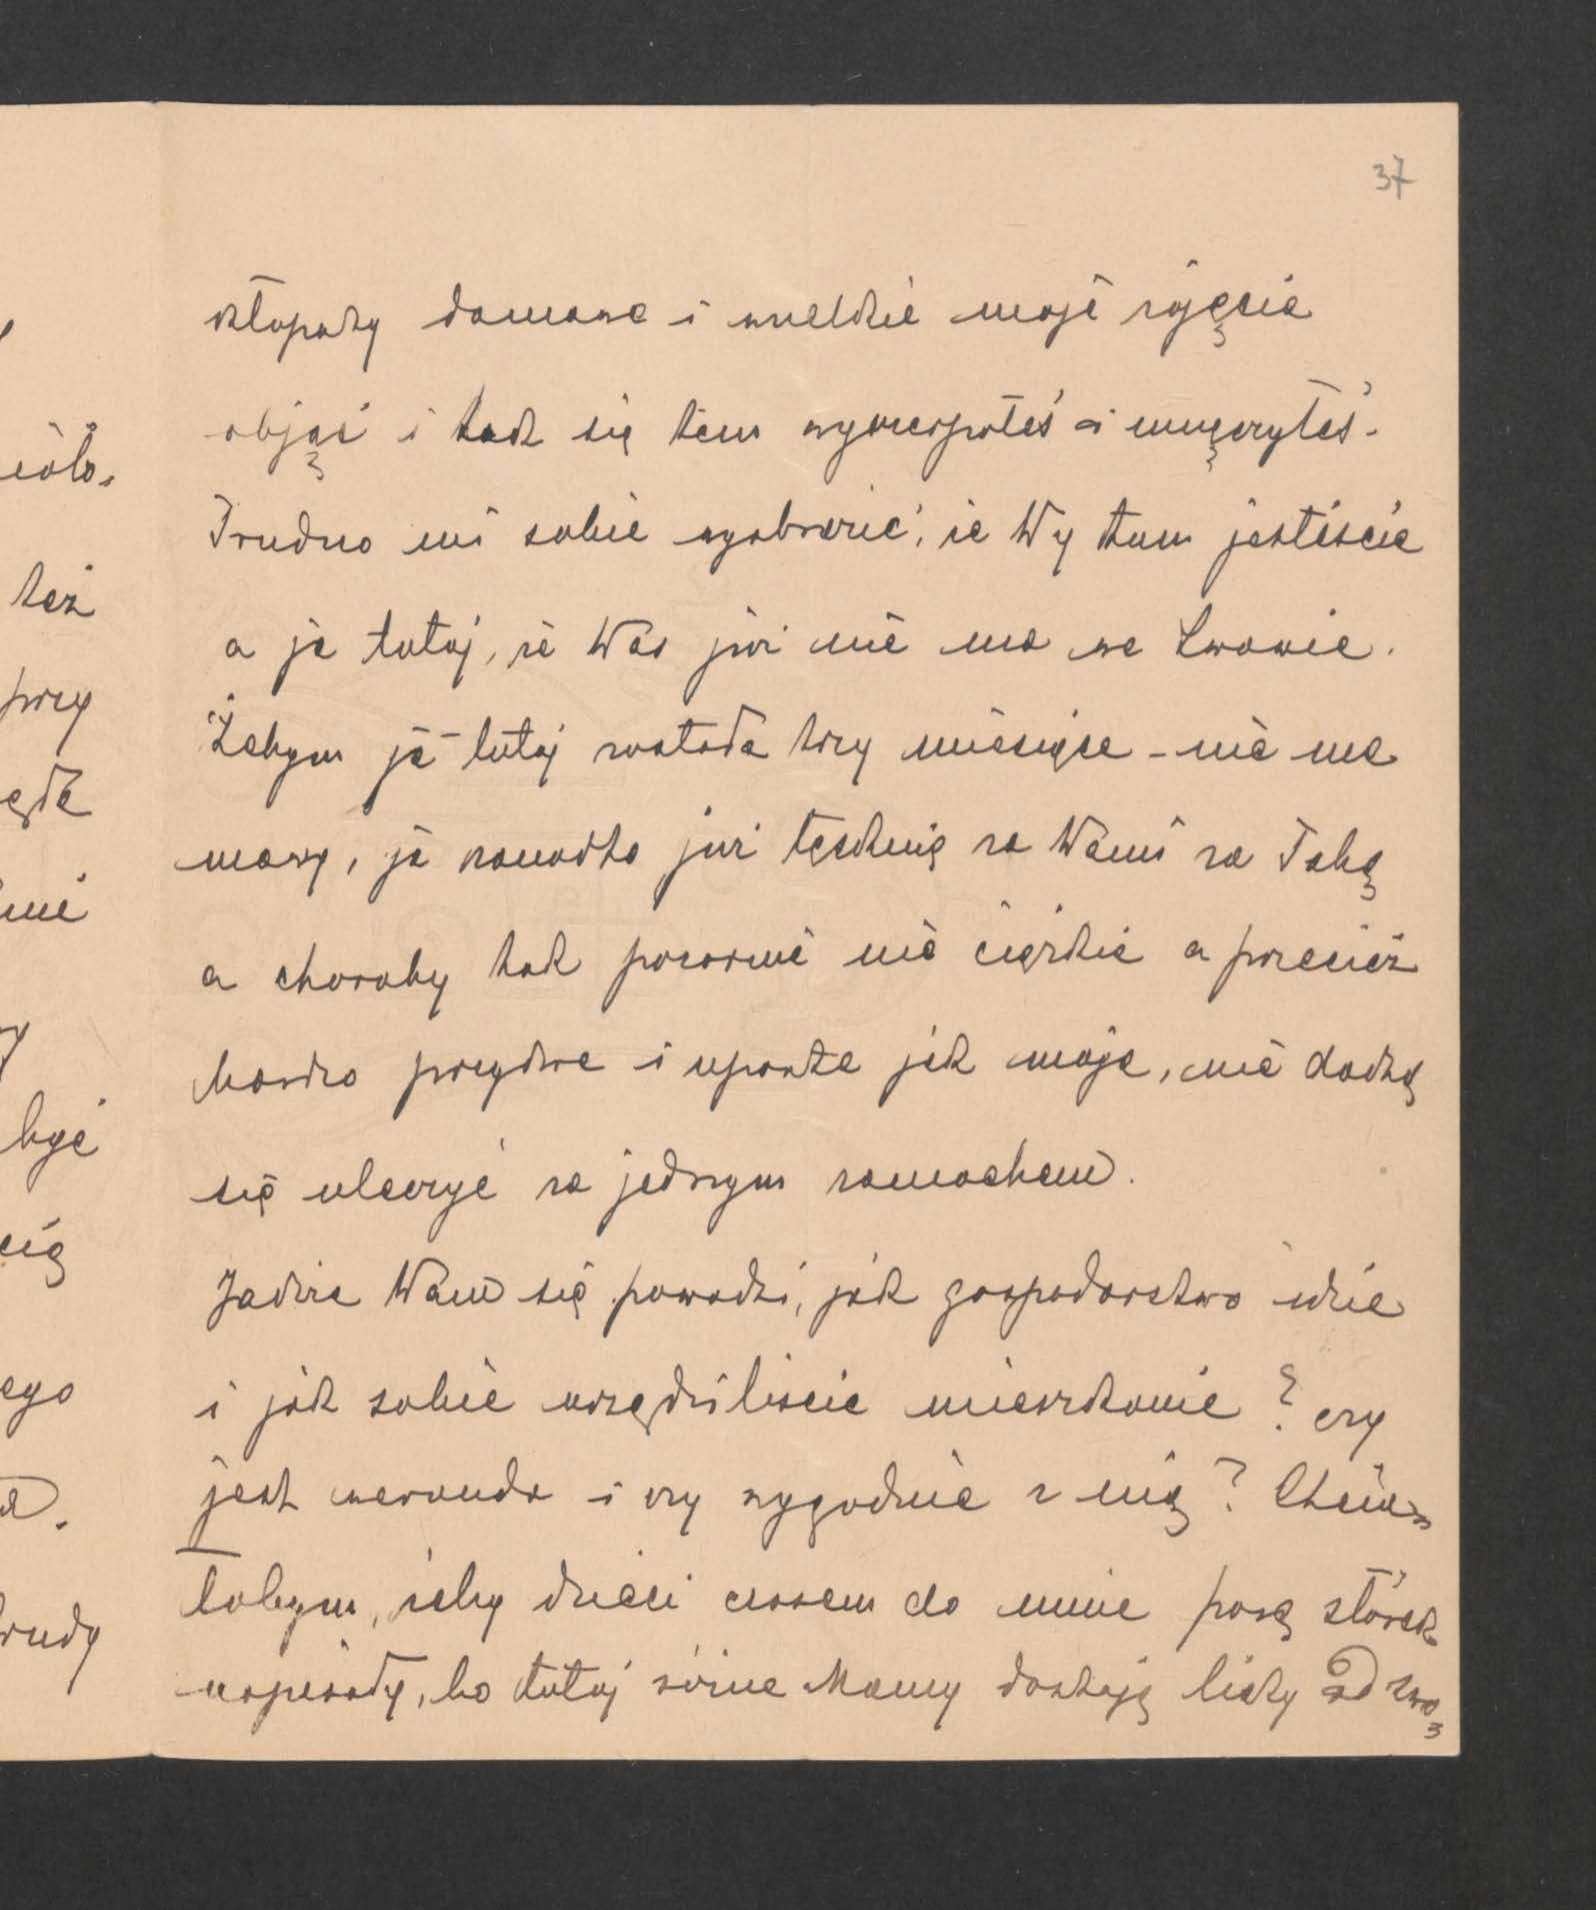 37
kłopoty domowe i wszelkie moje zajęcia
objąć i tak się tem wyczerpałeś i umęczyłeś.
Trudno mi sobie wyobrazić, że Wy tam jesteście
a ja tutaj, że Was już nie ma we Lwowie.
Żebym ja tutaj została trzy miesiące – nie ma
mowy, ja za już tęsknię za Wami za Tobą
a choroby tak pozornie nie ciężkie a przecież
bardzo przykre i uparte jak moja, nie dadzą
się uleczyć za jednym zamachem.
Jakże Wam się powodzi, jak gospodarstwo idzie
i jak sobie urządziliście mieszkanie? czy
jest weranda i czy wygodnie z nią? Chcia-
łabym, żeby dzieci czasem do mnie parę słówek
napisały, bo tutaj różne Mamy dostają listy od swo
iało.
też
przy
być
ego